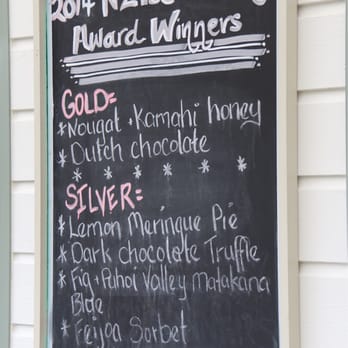 2014
Award Winners
GOLD=
*Nougat + Kamahi honey
*Dutch chocolate
* * * * * *
SILVER=
*Lemon Meringue Pie
*Dark chocolate Truffle
*Fig + Puhoi Valley Matakana
Blue
*Feijoa Sorbet